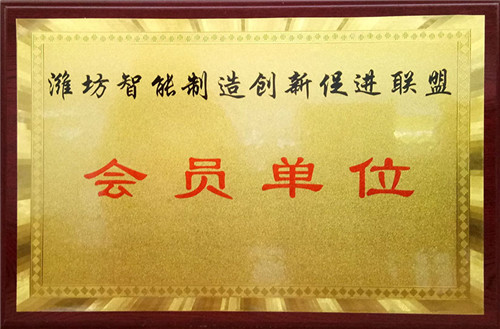 潍坊智能制造创新促进联盟
会员单位